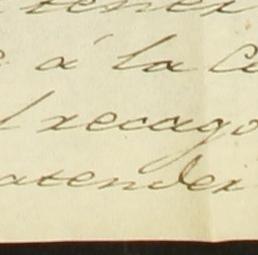 tener
á la Ca
l recago
atender